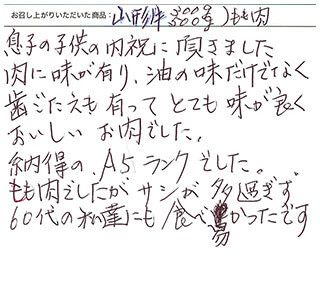 お召し上がりいただいた商品： 山形牛 もも肉
息子の子供の内祝に頂きました
肉に味が有り、油の味だけでなく
歯ごたえも有ってとても味が良く
おいしいお肉でした。
納得の、A5ランクでした。
もも肉でしたがサシが多過ぎず
60代の私達にも食べ易かったです